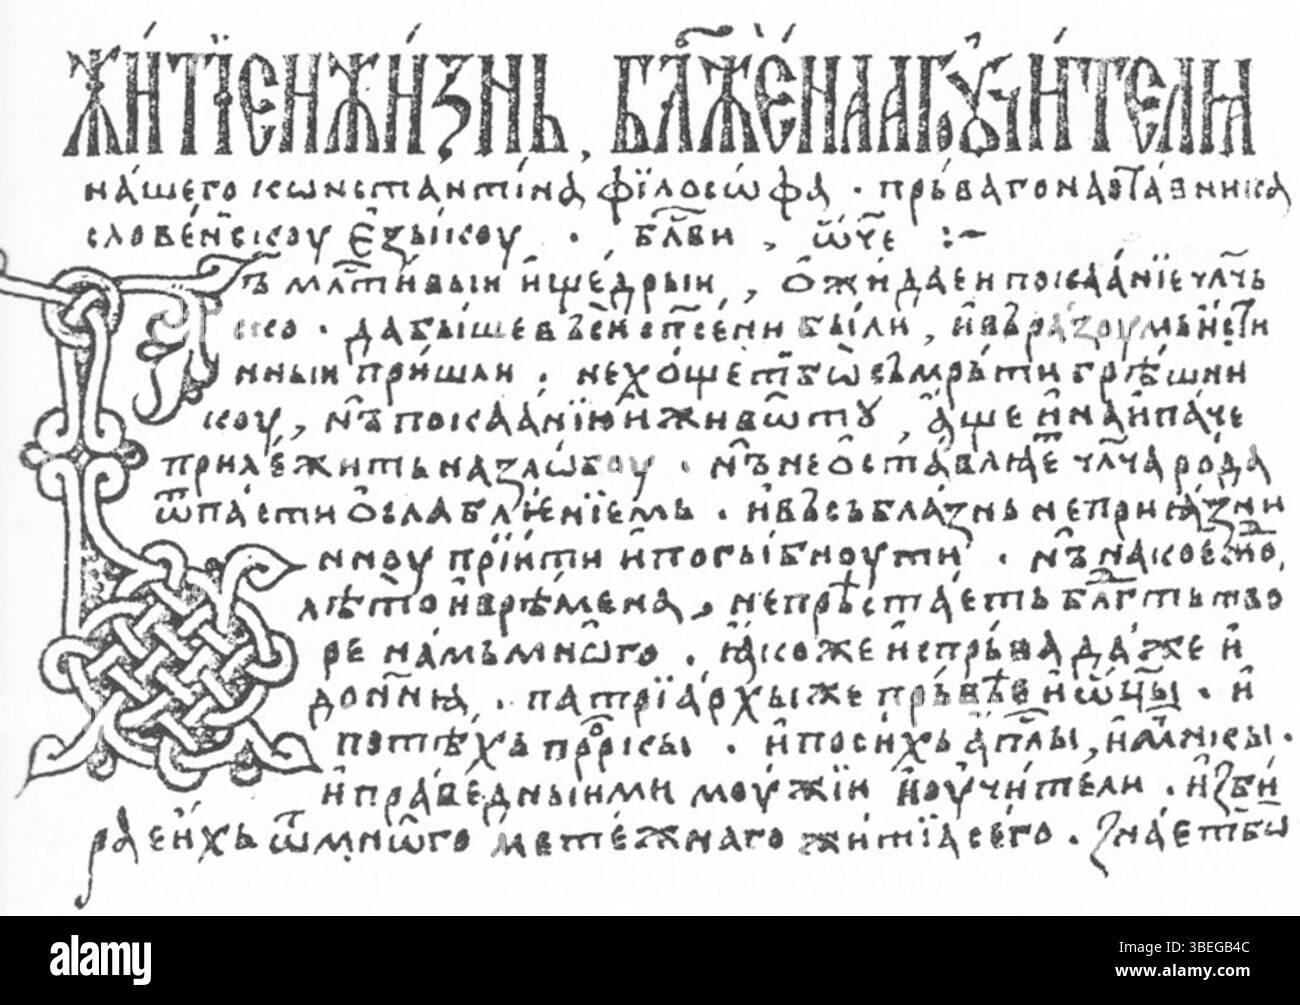 ЖИ́ТЇЕ И ЖИ́ЗНЬ. БЛ҃ЖЕ́НААГѠ ОУЧИ́ТЕЛꙖ
на́шего кѡнстантї́на фїлосѡ́фа · пръ́ваго наста́вника
слове́нскоу ѥзы́коу · бл҃ви, ѿч҃е :~
Б҃ъ мл҃ти́выи и҆ ще́дрыи, ѻ҆жи́дае и покаа́нїе чл҃чь
ско · да бы́ше въси сп҃се́ни бы́ли, и҆ въ ра́зоумь и҆сти
нныи пришли · не хо́щет бѡ съмръ́ти грѣ́шни
коу, нъ покаа́нїю и҆ живѡту, а҆́ще и҆ наи҆па́че
прилежи́ть на злѡ́боу · нъ не ѻ҆ставлꙗ́ет чл҃ча ро́да
ѿпа́сти ѻ҆слабле́нїемь · и҆ въ съблазнь неприꙗ́зни
нноу прїити и҆ погы́бноути · нъ на коежⷣо
лѣ́то и҆ врѣ́мена, не прѣста́еть бл҃гть тво
ре на́мъ мнѡ́го · ꙗ҆́коже и҆спръ́ва да́же и҆
до нн҃ꙗ · патрїа́рхы же пръ́вѣе и҆ ѿц҃ы · и҆
по тѣ́хъ прⷪ҇рки · и҆ по си́хъ ап҃лы, и҆ мч҃нки ·
и҆ пра́ведныими моу́жїи и҆ оу҆чи́тели · и҆збы
рае и҆́хъ ѿ мнѡ́го мете́жнаго жи́тїа сего · зна́ет бѡ